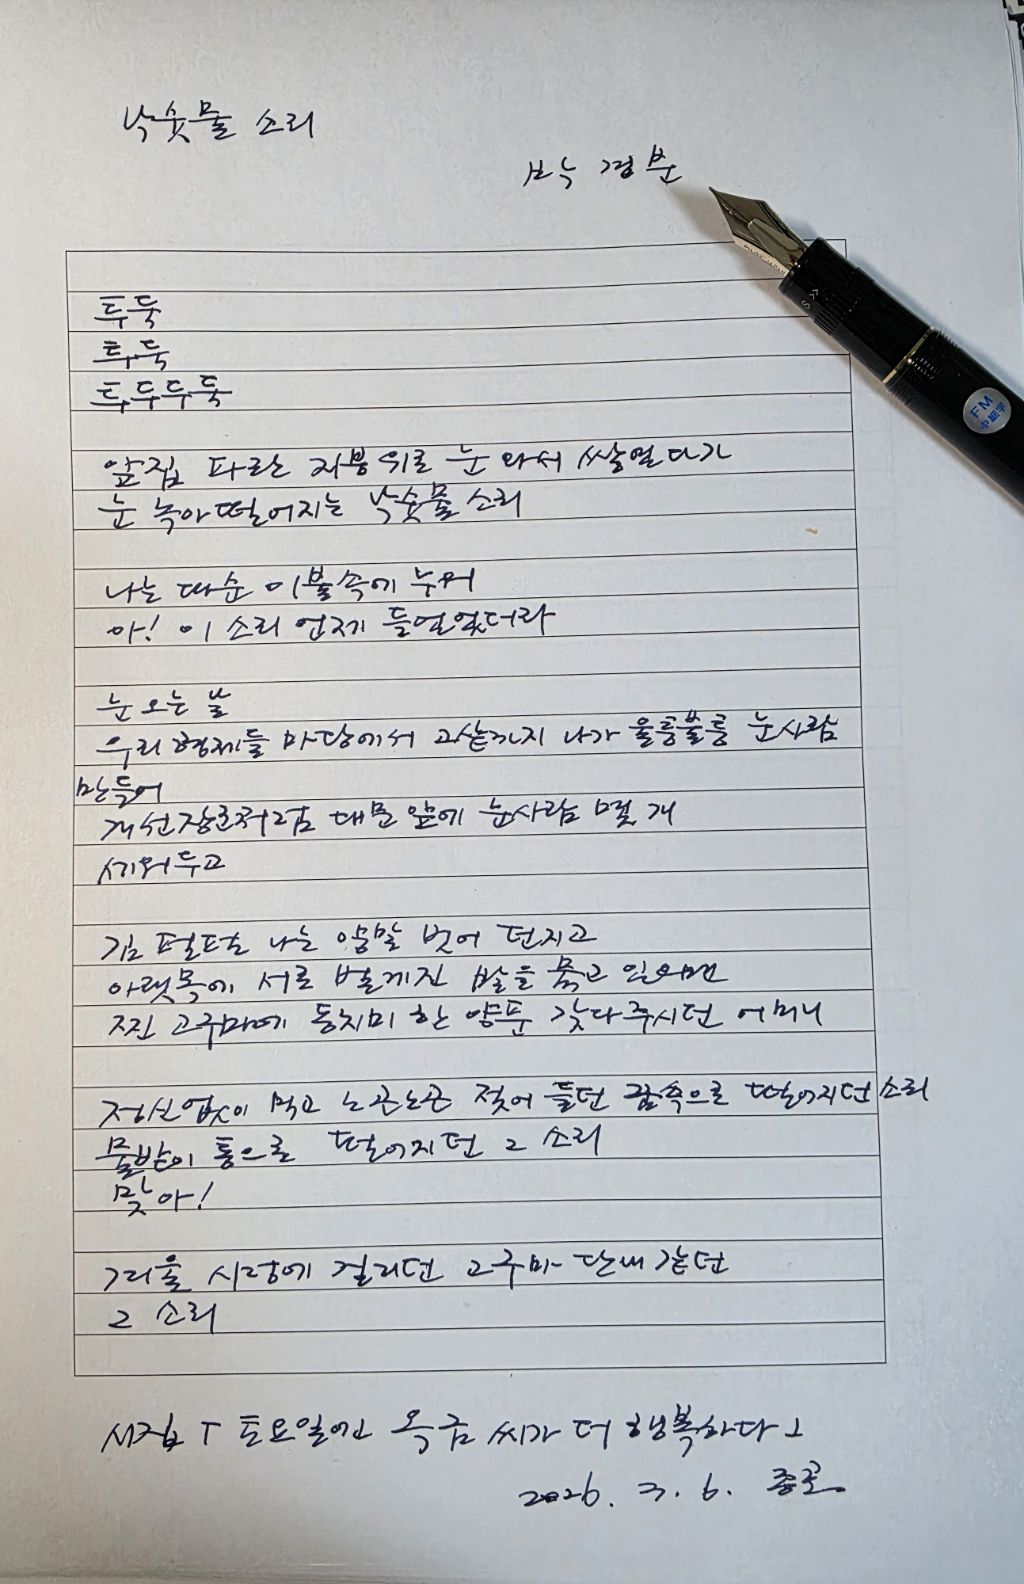 낙숫물 소리
박경분
투둑
투둑
투두두둑
앞집 파란 지붕 위로 눈 와서 쌓였다가
눈 녹아 떨어지는 낙숫물 소리
나는 따순 이불속에 누워
아! 이 소리 언제 들었었더라
눈 오는 날
우리 형제들 마당에서 고샅까지 나가 울퉁불퉁 눈사람
만들어
개선장군처럼 대문 앞에 눈사람 몇 개
세워두고
김 펄펄 나는 양말 벗어 던지고
아랫목에 서로 벌게진 발을 묻고 있으면
찐 고구마에 동치미 한 양푼 갖다주시던 어머니
정신없이 먹고 노곤노곤 젖어 들던 꿈속으로 떨어지던 소리
물받이 통으로 떨어지던 그 소리
맞아!
겨울 시렁에 걸리던 고구마 단내 같던
그 소리
시집 「토요일엔 옥금 씨가 더 행복하다」
2026. 3. 6.
PILOT JAPAN
S >>
FM
中細字